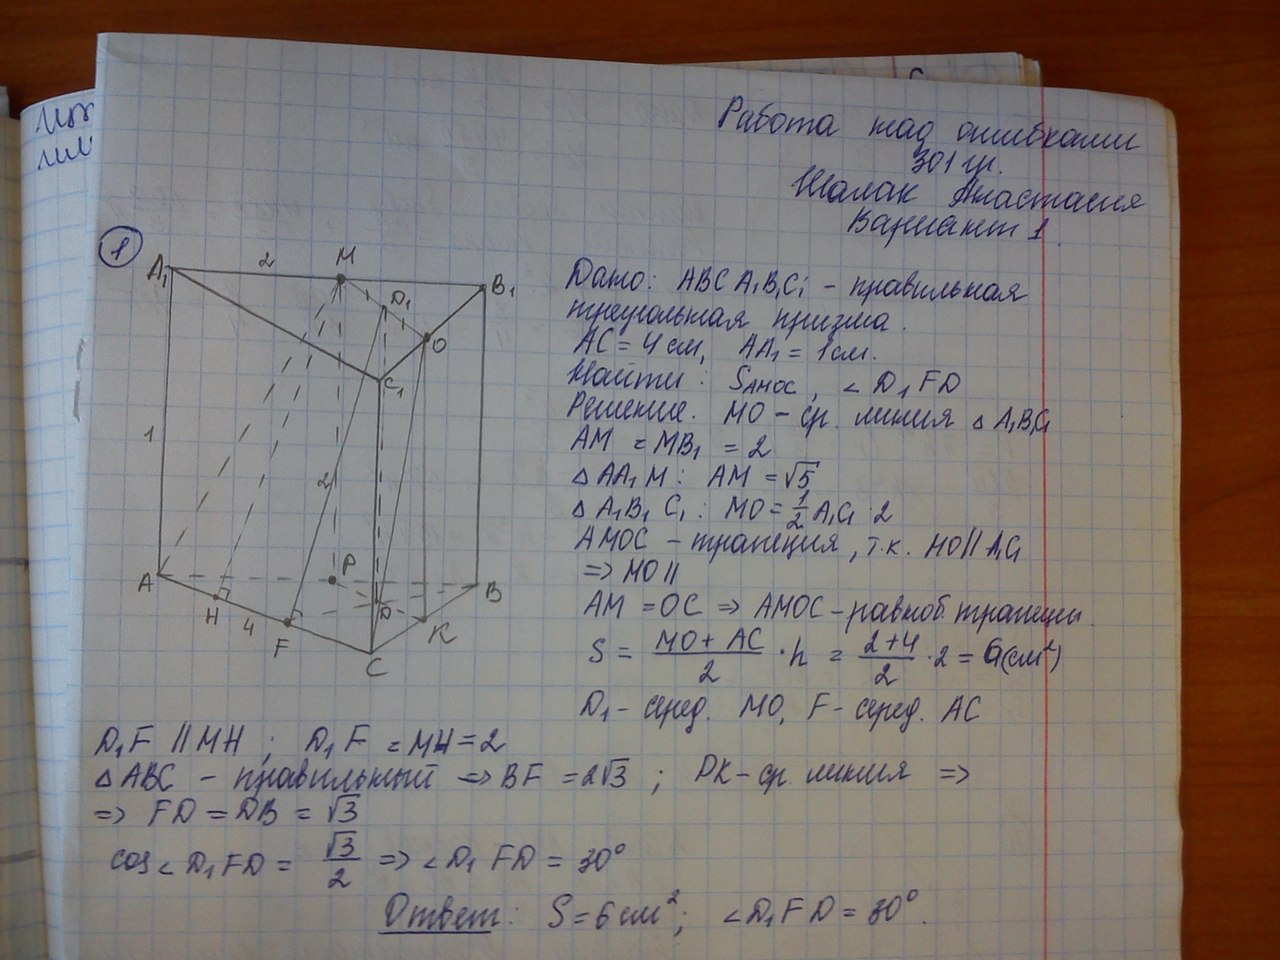 Работа над ошибками
301 гр.
Шалак Анастасия
Вариант 1.
1
A₁ 2 M B₁
D₁
O
C₁
1
2
A P B
H 4 F D K
C
Дано: ABC A₁B₁C₁ – правильная
треугольная призма.
AC = 4 см, AA₁ = 1 см.
Найти: Sᴀᴍᴏᴄ, ∠ D₁FD
Решение. MO – ср. линия △ A₁B₁C₁
AM = MB₁ = 2
△ AA₁M : AM = √5
△ A₁B₁C₁ : MO = 1/2 A₁C₁ 2
AMOC – трапеция, т.к. MO || A₁C₁
=> MO ||
AM = OC => AMOC – равноб. трапеции.
S = (MO + AC)/2 · h = (2+4)/2 · 2 = 6 (см²)
D₁ – серед. MO, F – серед. AC
D₁F || MH ; D₁F = MH = 2
△ ABC – правильный => BF = 2√3 ; PK – ср. линия =>
=> FD = DB = √3
cos ∠ D₁FD = √3/2 => ∠ D₁FD = 30°
Ответ: S = 6 см²; ∠D₁FD = 30°.